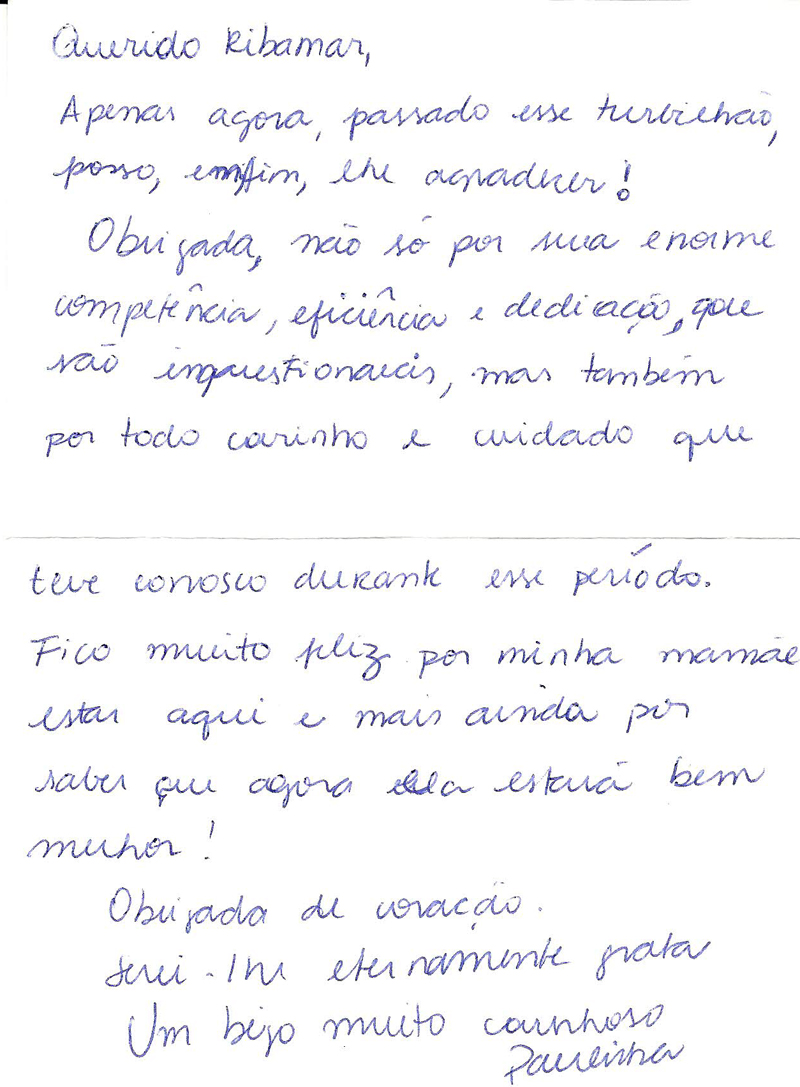 Querido Ribamar,
Apenas agora, passado esse turbilhão,
posso, enfim, lhe agradecer!
Obrigada, não só por sua enorme
competência, eficiência e dedicação, que
são inquestionáveis, mas também
por todo carinho e cuidado que
teve conosco durante esse período.
Fico muito feliz por minha mamãe
estar aqui e mais ainda por
saber que agora ela estará bem
melhor!
Obrigada de coração.
Serei-lhe eternamente grata
Um beijo muito carinhoso
Paulinha